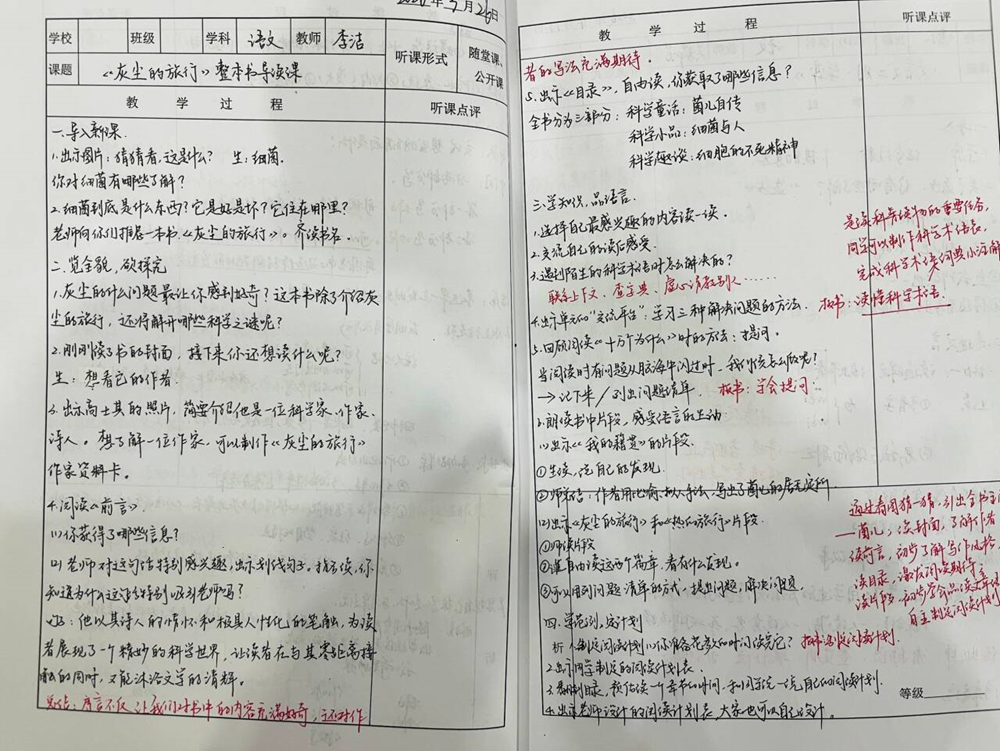 学校 班级 学科 语文 教师 李洁 听课形式 随堂课、公开课
课题 《灰尘的旅行》整本书导读课
教 学 过 程 听课点评
一.导入新课.
1.出示图片:猜猜看,这是什么? 生:细菌.
你对细菌有哪些了解?
2.细菌到底是什么东西?它是好是坏?它住在哪里?
老师向你们推荐一本书,《灰尘的旅行》。齐读书名.
二.览全貌,欲探究
1.灰尘的什么问题最让你感到好奇?这本书除了介绍灰
尘的旅行,还将解开哪些科学之谜呢?
2.刚刚读了书的封面,接下来你还想读什么呢?
生:想看它的作者.
3.出示高士其的照片,简要介绍他是一位科学家、作家、
诗人。想了解一位作家,可以制作《灰尘的旅行》
作家资料卡。
4.阅读《前言》
(1)你获得了哪些信息?
(2)老师对这句话特别感兴趣,出示划线句子。指名读,你
知道为什么这句话特别吸引老师吗?
他以其诗人的情怀和极具人性化的笔触,为读
者展现了一个精妙的科学世界,让读者在与其零距离接
触的同时,又能沐浴文学的清辉。
总结:序言不仅让我们对书中的内容充满好奇,还对作
教 学 过 程 听课点评
者的写法充满期待。
5.出示《目录》,自由读,你获取了哪些信息?
全书分为三部分:科学童话:菌儿自传
科学小品:细菌与人
科学趣谈:细胞的不死精神
三.学知识,品语言.
1.选择自己最感兴趣的内容读一读.
2.交流自己的读后感受.
3.遇到陌生的科学术语时怎么解决的?
联系上下文、查字典、虚心请教别人……
4.出示单元的"交流平台":学习三种解决问题的方法
5.回顾阅读《十万个为什么》时的方法:提问.
当阅读时有问题从脑海中闪过时,我们该怎么做呢?
→记下来/列出问题清单. 板书:学会提问.
是读科普读物的重要任务,
同学可以制作科学术语表,
板书:读懂科学术语.
6.朗读书中片段,感受语言的生动.
(1)出示《我的籍贯》的片段.
①生读,说自己的发现.
②师总结:作者用比喻、拟人手法,写出了菌儿的居无定所
(2)出示《灰尘的旅行》和《热的旅行》片段.
①师读片段
②自由读这两个篇章,看有什么发现。
③可以用列问题清单的方式,提出问题,解决问题.
四.学范例,定计划
1.制定阅读计划:你准备花多少时间读完它? 板书:制定阅读计划.
2.出示同学制定的阅读计划表.
3.翻到目录,预估读一个章节的时间,和同学说一说自己的阅读计划.
4.出示老师设计的阅读计划表,大家也可以自己设计。
通过看图猜一猜,引出全书主
—菌儿,读封面,了解作者
读前言,初步了解写作风格,
读目录,激发阅读期待;
自主制定阅读计划
析
等级